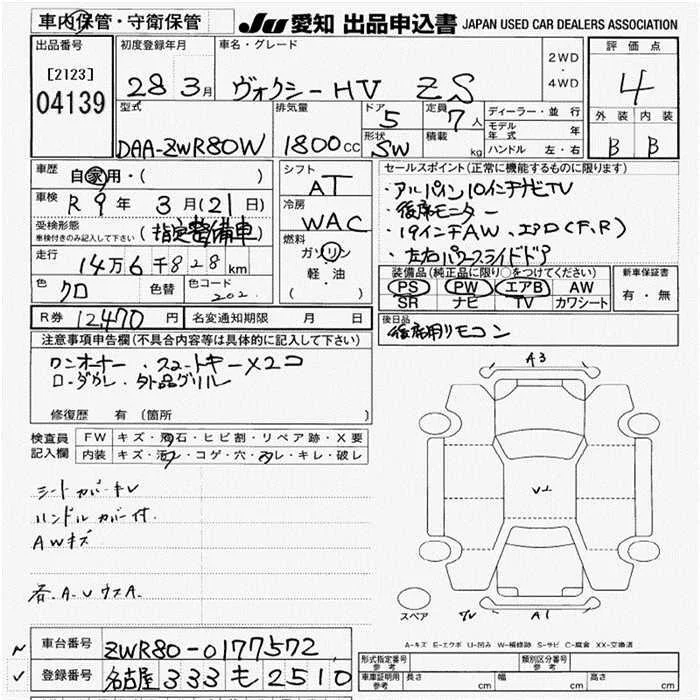 車内保管・守衛保管
JU 愛知 出品申込書 JAPAN USED CAR DEALERS ASSOCIATION
出品番号
[2123]
04139
初度登録年月
28 3月
車名・グレード
ヴォクシーHV ZS
2WD
・
4WD
評価点
4
外装 内装
B B
型式
DAA-ZWR80W
排気量
1800CC
ドア
5
形状
SW
定員
7人
積載
kg
ディーラー・並行
モデル年式 年
ハンドル 左・右
車歴 自家用・( )
車検 R 9年 3月(21日)
受検形態
車検付きのみ記入して下さい (指定整備車)
走行 14万6千828km
色 クロ 色替 色コード 202
シフト
AT
冷房
WAC
燃料
ガソリン
軽・油
( )
セールスポイント(正常に機能するものに限ります)
・アルパイン10インチナビTV
・後席モニター
・19インチAW、エアロ(F、R)
・左右パワースライドドア
装備品(純正品に限り○をつけてください)
PS PW エアB AW
SR ナビ TV カワシート
新車保証書
有・無
R券 12,470円 名変通知期限 月 日
後日品
後席用リモコン
注意事項申告欄(不具合内容等は具体的に記入して下さい)
ワンオーナー・スマートキーX2コ
ローダウン・外品グリル
修復歴 有(箇所
検査員
記入欄
FW キズ・飛石・ヒビ割・リペア跡・X要
内装 キズ・汚レ・コゲ・穴・スレ・キレ・破レ
シートカバーキレ
ハンドルカバー付.
AWキズ
各.A.UウスA.
A3
A1
スペア
A-キズ E-エクボ U-凹み W-補修跡 S-サビ C-腐食 XX-交換済
車台番号 ZWR80-0177572
登録番号 名古屋 333 も 2510
形式指定番号
参考
類別区分番号
参考
車庫証明用
参考
長さ cm 幅 cm 高さ cm